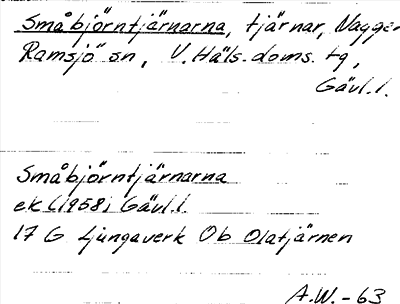 Småbjörntjärnarna, tjärnar, Naggen
Ramsjö sn, V. Häls. doms. tg,
Gävl. l.
Småbjörntjärnarna
ek (1958) Gävl. l.
17 G Ljungaverk Ob Olatjärnen
A.W. - 63